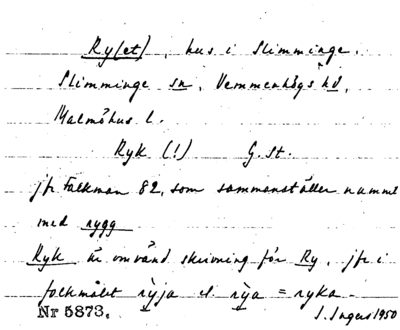 Ry(et), hus i Slimminge.
Slimminge sn, Vemmenhögs hd,
Malmöhus l.
Ryk (!) G. St.
jfr Falkman 82, som sammanställer namnet
med rygg
Ryk är omvänd skrivning för Ry, jfr i
folkmålet ryja el rya = ryka.
Nr 5873. I. Ingers 1950